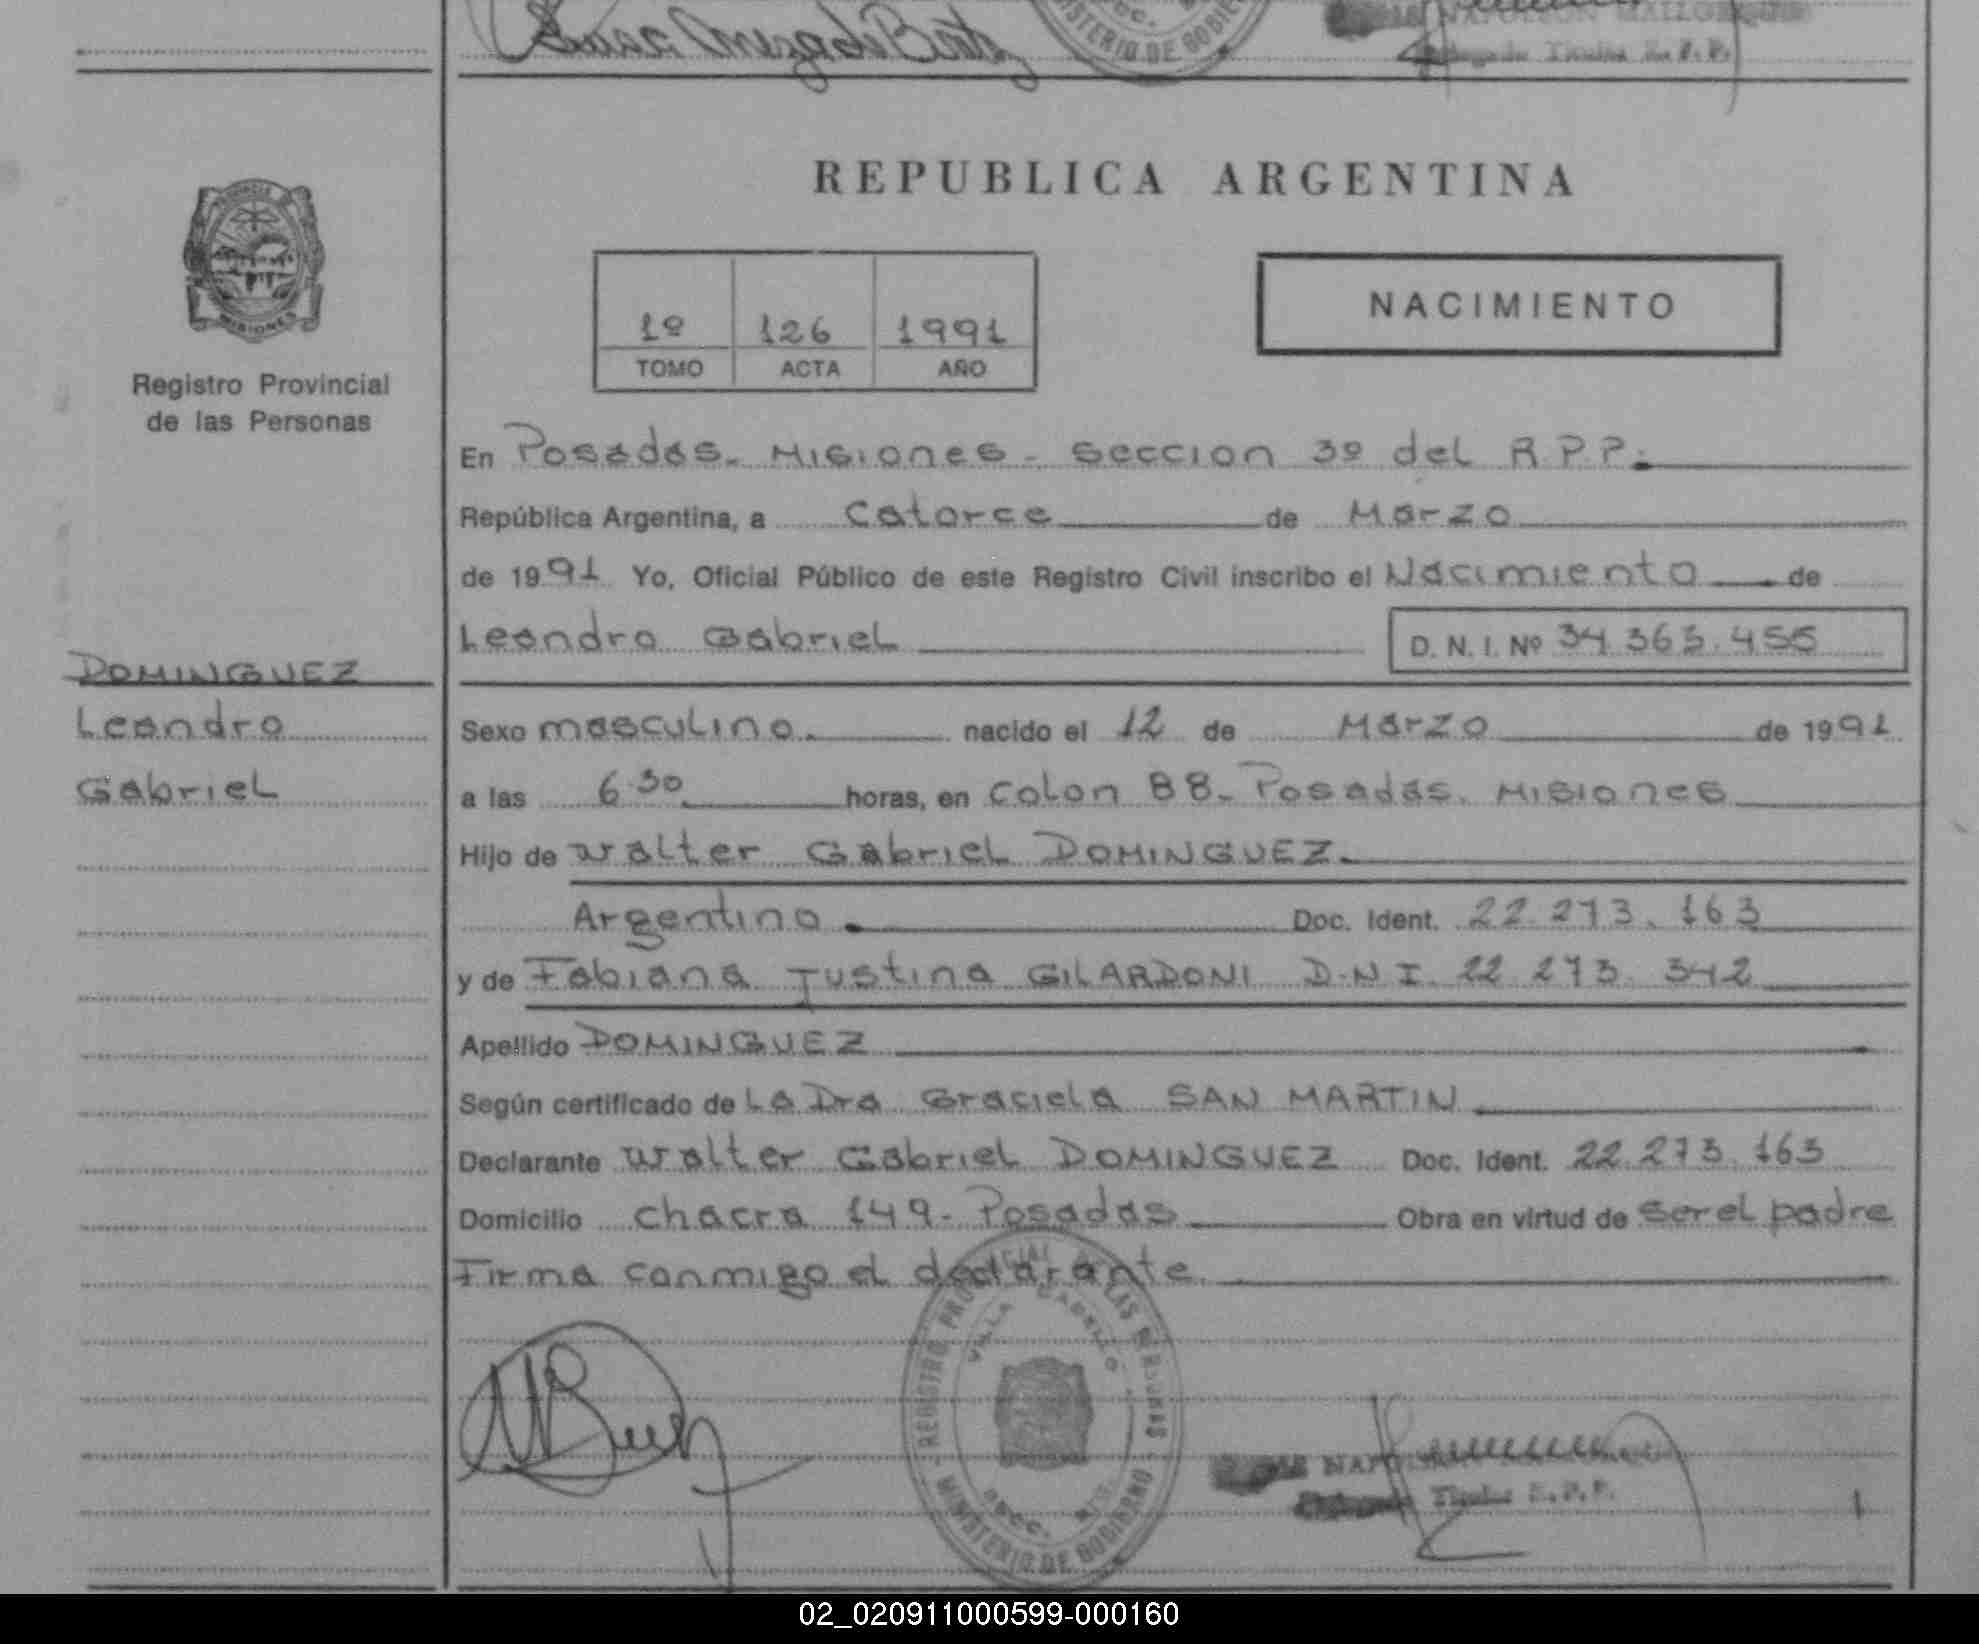 REPUBLICA ARGENTINA
PROVINCIA
MISIONES
Registro Provincial
de las Personas
1º 126 1991
TOMO ACTA AÑO
NACIMIENTO
En Posadas. Misiones - Seccion 3º del R.P.P.
República Argentina, a Catorce de Marzo
de 1991 Yo, Oficial Público de este Registro Civil inscribo el Nacimiento de
Leandro Gabriel D. N. I. Nº 34.363.455
DOMINGUEZ
Leandro
Gabriel
Sexo masculino. nacido el 12 de Marzo de 1991
a las 6.30 horas, en Colon 88. Posadas. Misiones
Hijo de Walter Gabriel DOMINGUEZ.
Argentino. Doc. Ident. 22.273.163
y de Fabiana Justina GILARDONI D.N.I. 22.273.342
Apellido DOMINGUEZ
Según certificado de La Dra Graciela SAN MARTIN
Declarante Walter Gabriel DOMINGUEZ Doc. Ident. 22.273.163
Domicilio chacra 149- Posadas Obra en virtud de ser el padre
Firma conmigo el declarante
REGISTRO PROVINCIAL DE LAS PERSONAS
VILLA CABELLO
MINISTERIO DE GOBIERNO
Titular
02_020911000599-000160